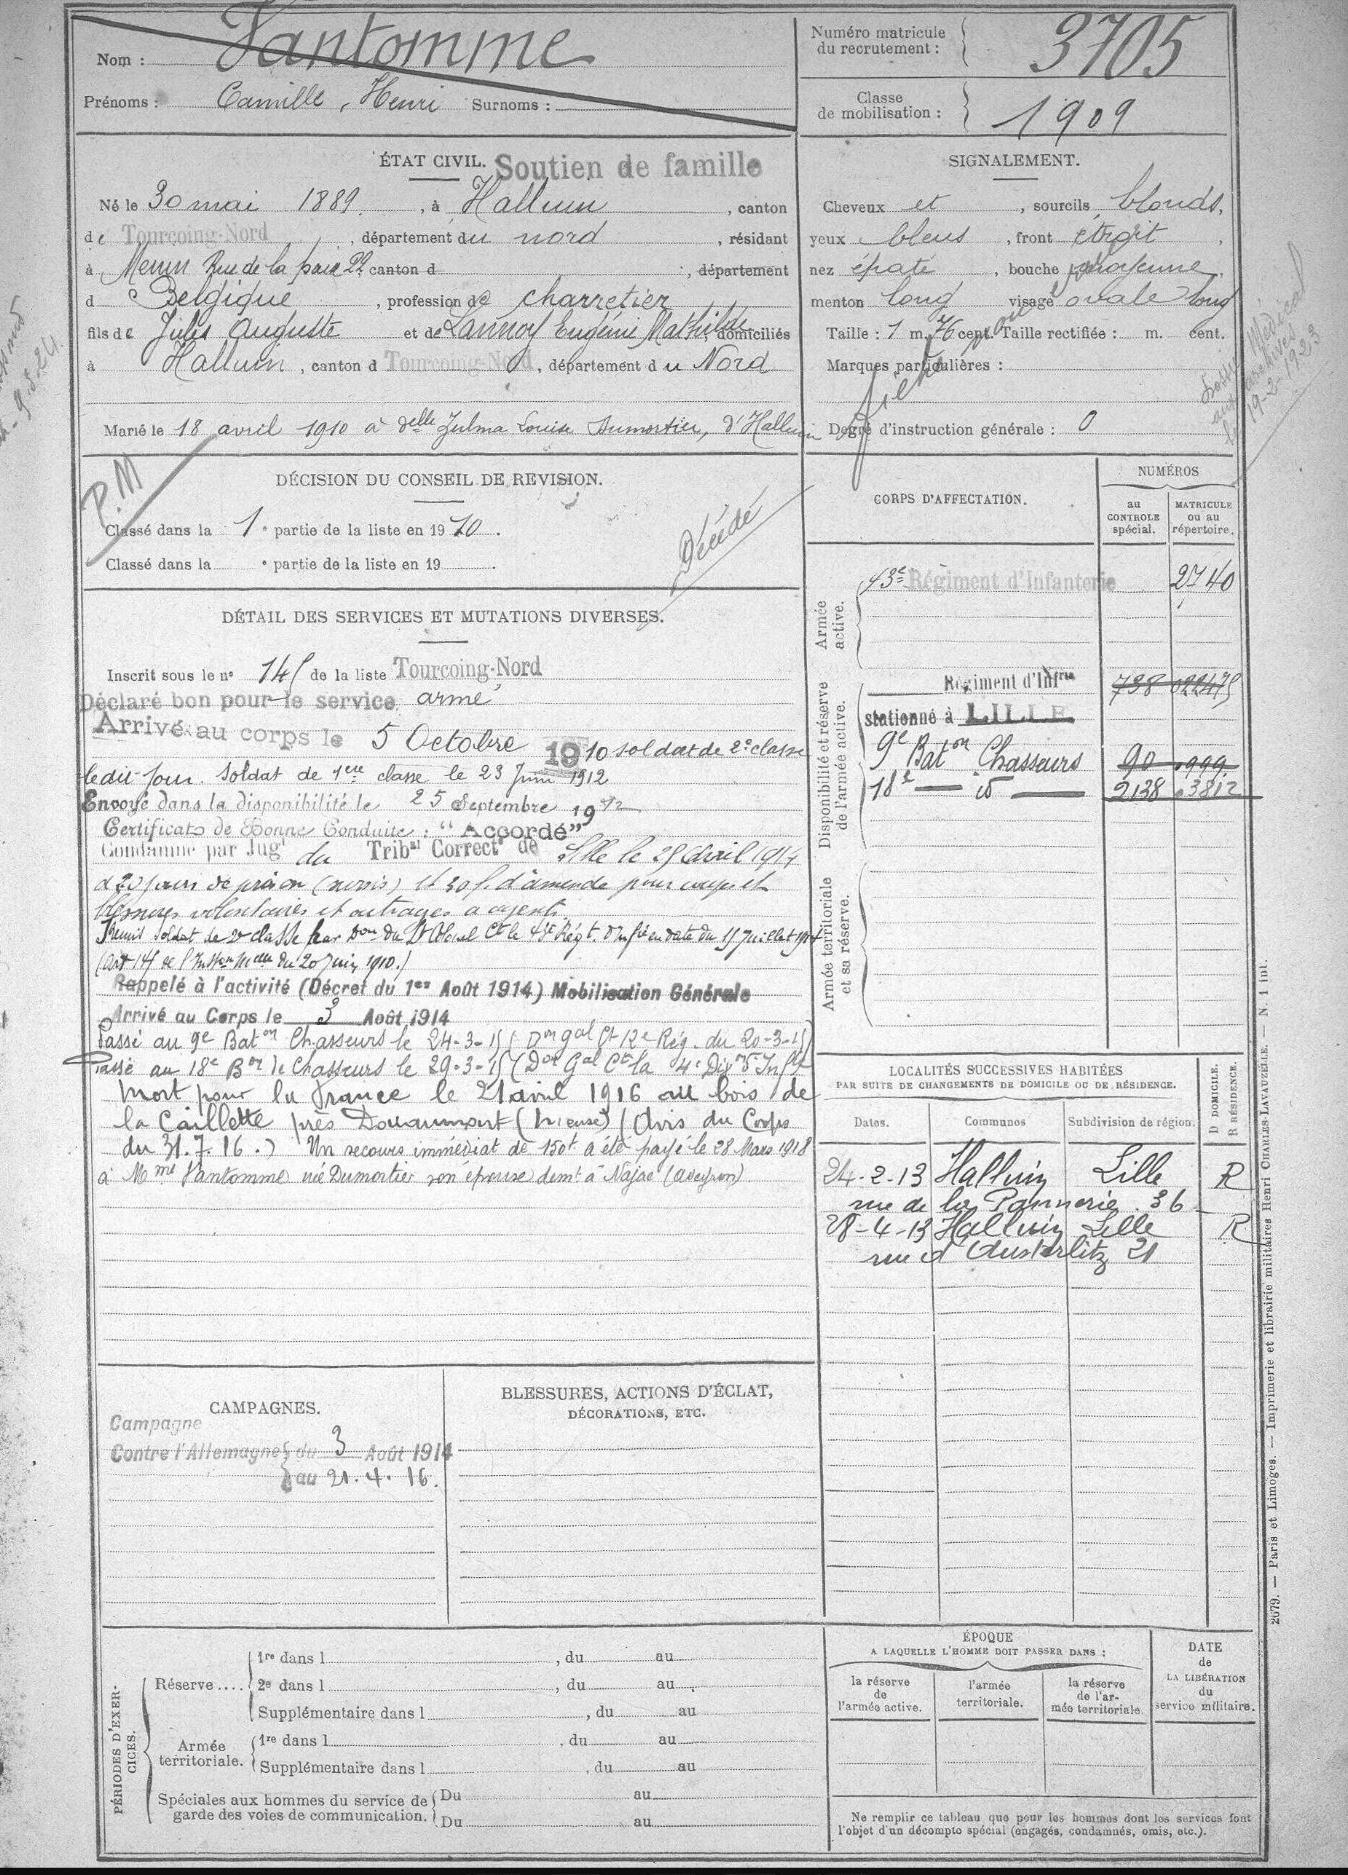 Nom : Vantomme
Prénoms : Camille, Henri Surnoms :
Numéro matricule
du recrutement : 3705
Classe
de mobilisation : 1909
ÉTAT CIVIL. Soutien de famille
Né le 30 mai 1889, à Halluin, canton
de Tourcoing-Nord, département du nord, résidant
à Menin Rue de la paix 22 canton d , département
d Belgique, profession de charretier
fils de Jules Auguste et de Lannoy Eugénie Mathilde, domiciliés
à Halluin, canton d Tourcoing-Nord, département du Nord
Marié le 18 avril 1910 à delle Julma Louise Dumortier, d'Halluin
SIGNALEMENT.
Cheveux et , sourcils blonds,
yeux bleus, front étroit,
nez épaté, bouche moyenne,
menton long visage ovale long
Taille : 1 m. 76 cent. Taille rectifiée : m. cent.
Marques particulières :
Degré d'instruction générale : 0
Médical
aux archives
le 19-2-1923
9.8.24.
P.M
DÉCISION DU CONSEIL DE REVISION.
Classé dans la 1e partie de la liste en 1910.
Classé dans la e partie de la liste en 19 .
Décédé
DÉTAIL DES SERVICES ET MUTATIONS DIVERSES.
Inscrit sous le no 145 de la liste Tourcoing-Nord
Déclaré bon pour le service armé
Arrivé au corps le 5 Octobre 1910 soldat de 2e classe
ledit jour. Soldat de 1ere classe le 23 Juin 1912
Envoyé dans la disponibilité le 25 Septembre 1912
Certificat de Bonne Conduite : "Accordé"
Condamné par Jugt du Tribal Correctl de Lille le 29 avril 1914
à 20 jours de prison (sursis) et 30 f. d'amende pour coups et
blessures volontaires et outrages à agents.
Remis soldat de 2e classe par Don du Lt Colonel Ct le 43e Régt. d'Infie en date du 15 juillet 1914
(art 145 de l'Instron Melle du 20 Juin 1910.)
Rappelé à l'activité (Décret du 1er Août 1914) Mobilisation Générale
Arrivé au Corps le 3 Août 1914
Passé au 9e Baton Chasseurs le 24-3-15 (Don Gal Ct 12e Rég. du 20-3-15)
Passé au 18e Bon de Chasseurs le 29-3-15 (Don Gal Ct la 4e Dion d'Infie
Mort pour la France le 21 avril 1916 au bois de
la Caillette près Douaumont (Meuse) (Avis du Corps
du 31.7.16.) Un secours immédiat de 150f a été payé le 28 Mars 1918
à Mme Vantomme née Dumortier son épouse demt à Najac (Aveyron)
CORPS D'AFFECTATION.
NUMÉROS
au
CONTROLE
spécial.
MATRICULE
ou au
répertoire.
Armée
active.
43e Régiment d'Infanterie 2740
Disponibilité et réserve
de l'armée active.
Régiment d'Infrie 738 02247
stationné à LILLE
9e Baton Chasseurs 90 999
18e — d° — 2138 03812
Armée territoriale
et sa réserve.
LOCALITÉS SUCCESSIVES HABITÉES
PAR SUITE DE CHANGEMENTS DE DOMICILE OU DE RÉSIDENCE.
Dates. Communes Subdivision de région. D DOMICILE. R RÉSIDENCE.
24-2-13 Halluin Lille R
rue de la Pannerie 36
28-4-13 Halluin Lille R
rue d'Austerlitz 21
CAMPAGNES.
Campagne
Contre l'Allemagne du 3 Août 1914
au 21.4.16.
BLESSURES, ACTIONS D'ÉCLAT,
DÉCORATIONS, ETC.
PÉRIODES D'EXERCICES.
Réserve....
1re dans l , du au
2e dans l , du au
Supplémentaire dans l , du au
Armée
territoriale.
1re dans l , du au
Supplémentaire dans l , du au
Spéciales aux hommes du service de
garde des voies de communication.
Du au
Du au
ÉPOQUE
A LAQUELLE L'HOMME DOIT PASSER DANS :
la réserve
de
l'armée active.
l'armée
territoriale.
la réserve
de l'ar-
mée territoriale.
DATE
de
LA LIBÉRATION
du
service militaire.
Ne remplir ce tableau que pour les hommes dont les services font
l'objet d'un décompte spécial (engagés, condamnés, omis, etc.).
2679. — Paris et Limoges. — Imprimerie et librairie militaires Henri CHARLES-LAVAUZELLE. — N. 1 int.